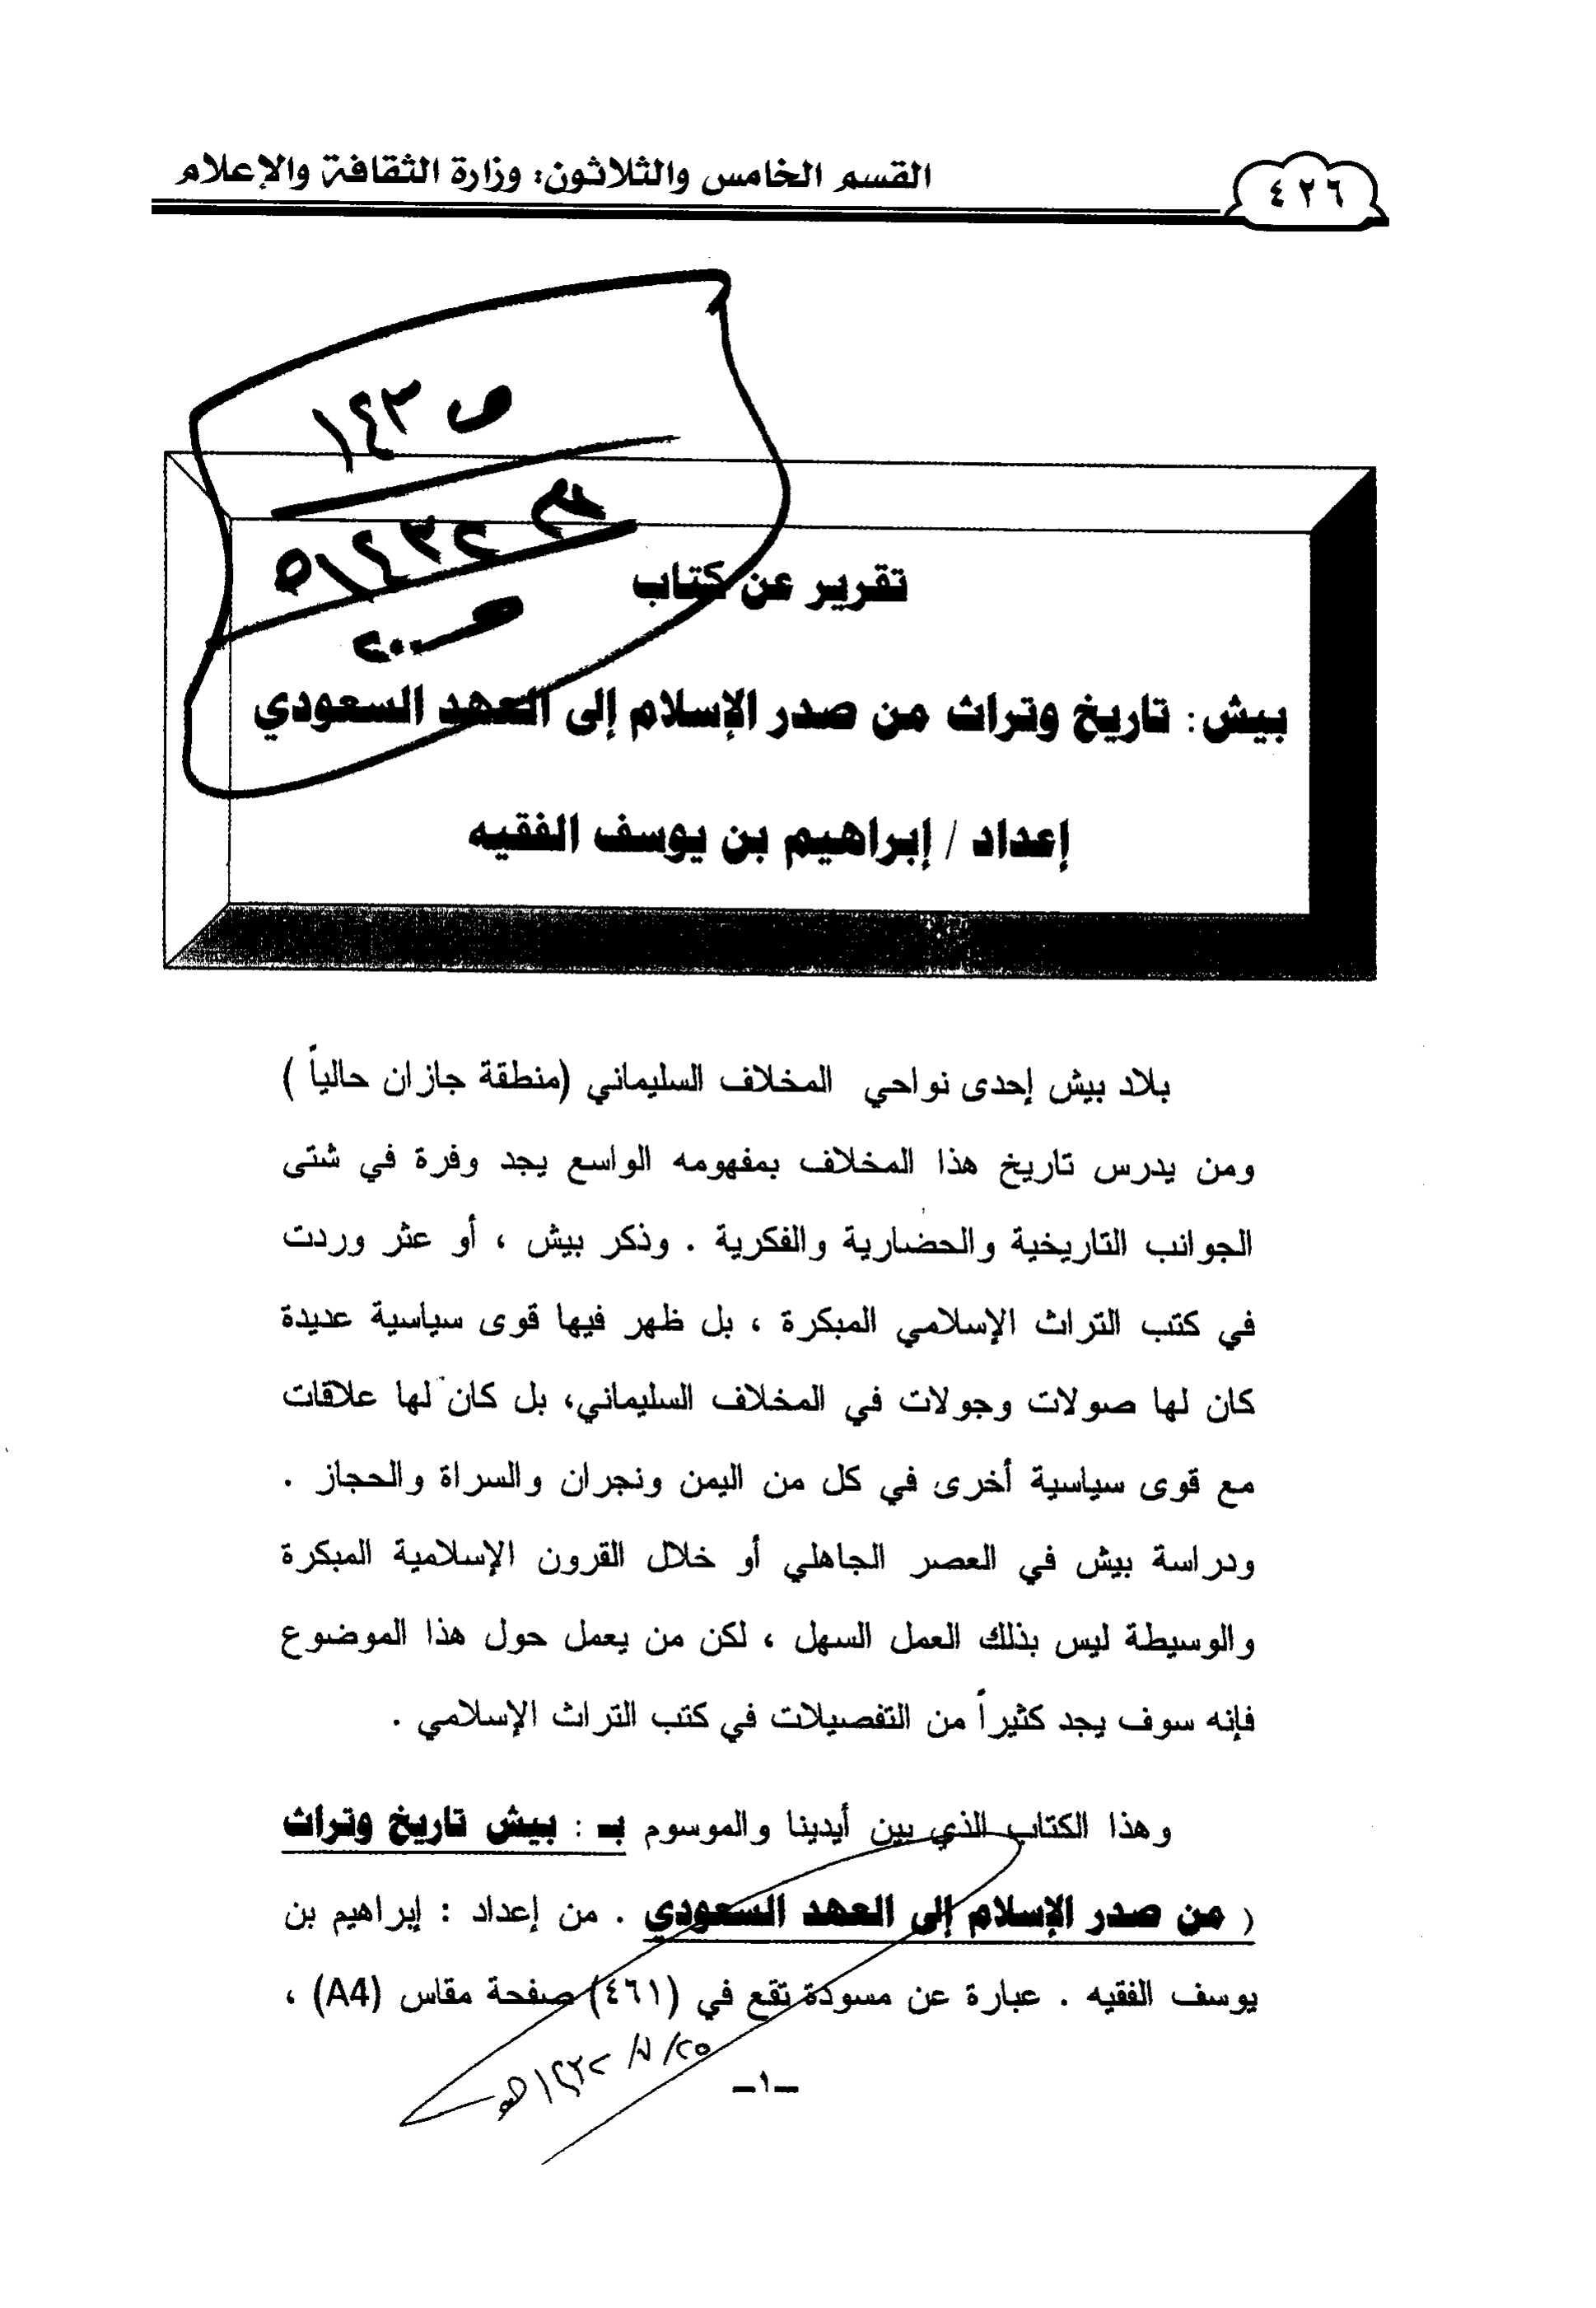 ٤٢٦
القسم الخامس والثلاثون: وزارة الثقافة والإعلام
ص ١٤٣
١٤٣٢هـ
تقرير عن كتاب
بيش: تاريخ وتراث من صدر الإسلام إلى العهد السعودي
إعداد / إبراهيم بن يوسف الفقيه
بلاد بيش إحدى نواحي المخلاف السليماني (منطقة جازان حالياً )
ومن يدرس تاريخ هذا المخلاف بمفهومه الواسع يجد وفرة في شتى
الجوانب التاريخية والحضارية والفكرية . وذكر بيش ، أو عثر وردت
في كتب التراث الإسلامي المبكرة ، بل ظهر فيها قوى سياسية عديدة
كان لها صولات وجولات في المخلاف السليماني، بل كان لها علاقات
مع قوى سياسية أخرى في كل من اليمن ونجران والسراة والحجاز .
ودراسة بيش في العصر الجاهلي أو خلال القرون الإسلامية المبكرة
والوسيطة ليس بذلك العمل السهل ، لكن من يعمل حول هذا الموضوع
فإنه سوف يجد كثيراً من التفصيلات في كتب التراث الإسلامي .
وهذا الكتاب الذي بين أيدينا والموسوم بـ : بيش تاريخ وتراث
( من صدر الإسلام إلى العهد السعودي . من إعداد : إبراهيم بن
يوسف الفقيه . عبارة عن مسودة تقع في (٤٦١) صفحة مقاس (A4) ،
ـ١ـ